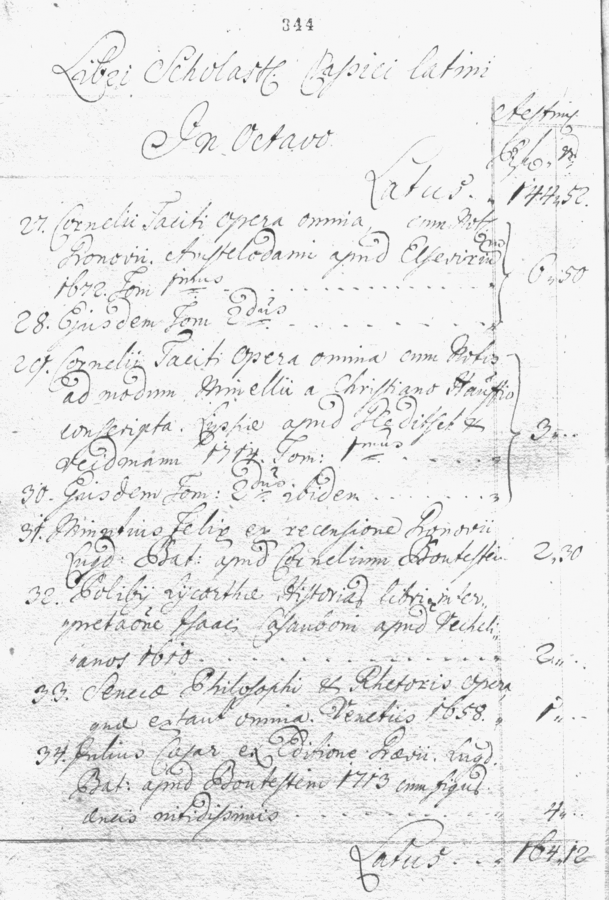 344
Libri Scholast: Classici latini
In Octavo.
Aestima
Latus. „ 144„52.
27. Cornelii Taciti opera omnia, cum Not.
Gronovii. Amstelodami apud Elsevirium
1672. Tom 1mus 6„50
28. Ejusdem Tom 2dus
29. Cornelii Taciti opera omnia cum Notis
ad modum Minellii a Christiano
conscripta. Lipsiae apud Gleditsch &
Weidmann 1714. Tom: 1mus 3„..
30. Ejusdem Tom: 2dus. ibidem
31. Minutius Felix ex recensione Gronovii
Lugd: Bat: apud Cornelium Boutestein 2„30
32. Polibij Lycortae Historiar libri inter„
„pretaõne Isaaci Casauboni apud Wecheli„
„anos 1610. 2„..
33. Senecae Philosophi & Rhetoris opera
quae extant omnia. Venetiis 1658. „ 1„..
34. Julius Caesar ex Editione Graevii. Lugd.
Bat: apud Boutestein 1713 cum figuris
aeneis nitidissimis 4„..
Latus 164„12